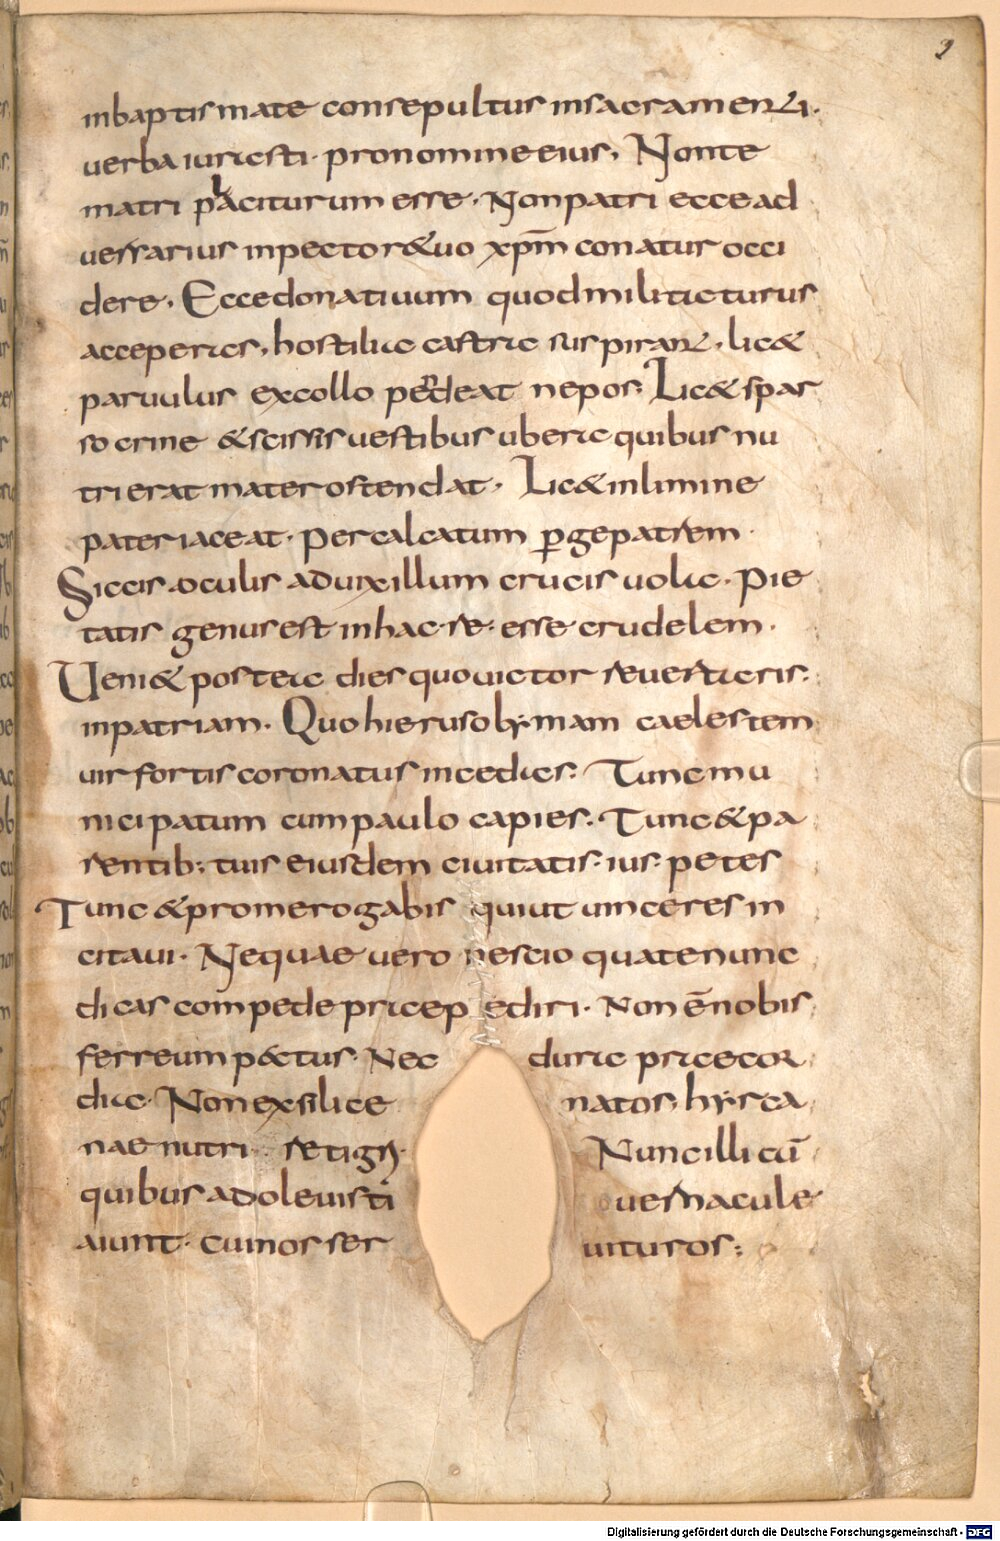 9
inbaptismate consepultus insacramenti.
uerba iurasti. pronomine eius, Nonte
matri placiturum esse. Nonpatri ecce ad
uersarius inpectore&uo xp̄m conatur occi
dere. Ecce donatiuum quod militaturus
acceperas, hostilia castra suspirant. lic&
paruulus excollo perdeat nepos. Lic& spar
so crine &scissis uestibus ubera quibus nu
trierat mater ostendat. Lic& inlimine
pater iaceat. per calcatum ꝑge patrem.
Siccis. oculis aduixillum crucis uola. pie
tatis genus est inhac re. esse crudelem.
Ueni& postea dies quo uictor reuertaris.
inpatriam. Quo hierusolymam caelestem
uir fortis coronatus incedas. Tunc mu
nicipatum cum paulo capies. Tunc &pa
rentib; tuis eiusdem ciuitatis. ius. petes
Tunc &prome rogabis qui ut uinceres in
citaui. Neque uero nescio qua te nunc
dicas compede praep ediri. Non ē nobis
ferreum pectus. Nec dura praecor
dia. Non ex silice natos, hyrca
nae nutri re tigr̄. Nunc illi cū
quibus adoleuisti uernacule
aiunt. cui nos ser uituros;
Digitalisierung gefördert durch die Deutsche Forschungsgemeinschaft - DFG